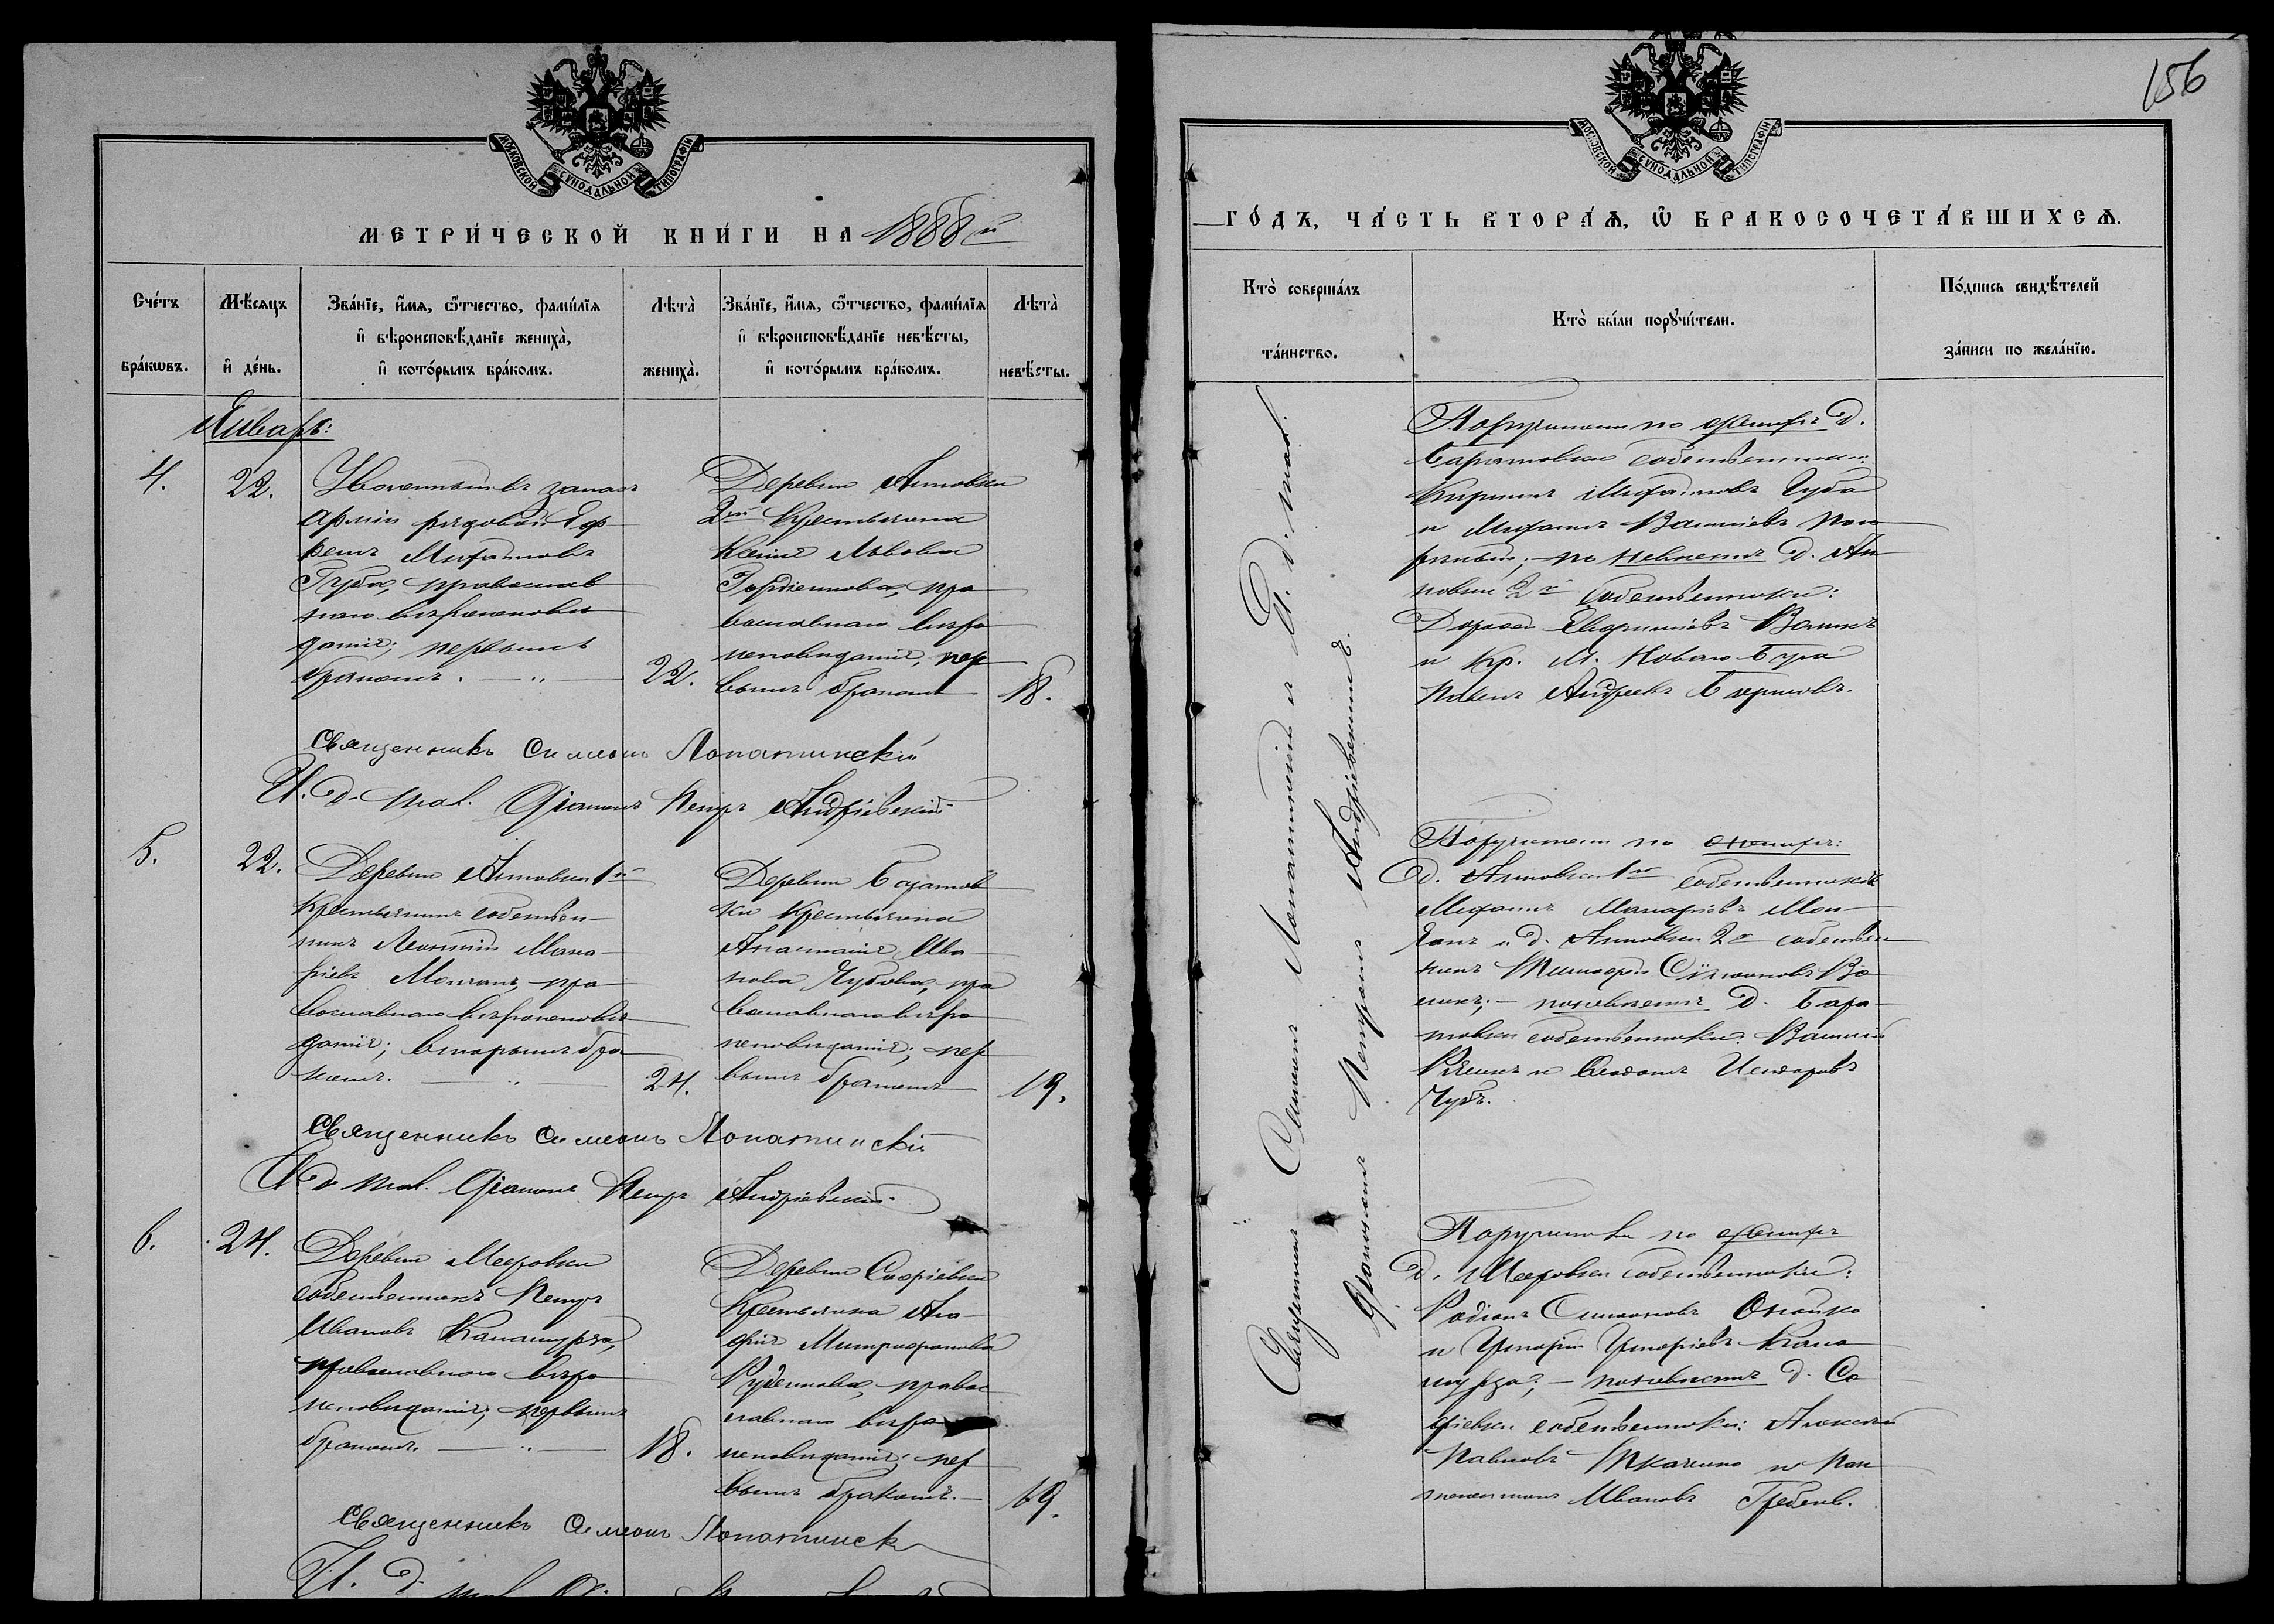 МОСКОВСКОЙ СѴНОДАЛЬНОЙ ТИПОГРАФІИ
МЕТРИ́ЧЕСКОЙ КНИ́ГИ НА 1888й
Сче́тъ бра́кѡвъ.
Мѣ́сяцъ и҆ де́нь.
Зва́нїе, и҆́мя, ѻ҆́тчество, фами́лїя и҆ вѣроисповѣ́данїе жениха̀, и҆ кото́рымъ бра́комъ.
Лѣта̀ жениха̀.
Зва́нїе, и҆́мя, ѻ҆́тчество, фами́лїя и҆ вѣроисповѣ́данїе невѣ́сты, и҆ кото́рымъ бра́комъ.
Лѣта̀ невѣ́сты.
Январь:
4.
22.
Уволенный въ запасъ
арміи рядовой Еф
ремъ Михайловъ
Губа, православ
наго вѣроисповѣ
данія; первымъ
бракомъ.
22.
Деревни Антовки
2й крестьянка
Ксенія Львова
Гордіенкова, пра
вославнаго вѣро
исповѣданія, пер
вымъ бракомъ
18.
Священникъ Симеонъ Лопатинскій
И. д. псал. Діаконъ Петръ Андріевскій
5.
22.
Деревни Антовки 1й
крестьянинъ собствен
никъ Леонтій Мака
ріевъ Молчанъ, пра
вославнаго вѣроисповѣ
данія; вторымъ бра
комъ.
24.
Деревни Богатов
ки крестьянка
Анастасія Ива
нова Чубова, пра
вославнаго вѣро
исповѣданія; пер
вымъ бракомъ
19.
Священникъ Симеонъ Лопатинскій
И. д. псал. Діаконъ Петръ Андріевскій
6.
24.
Деревни Мееровки
собственникъ Петръ
Ивановъ Капамурза,
православнаго вѣро
исповѣданія; первымъ
бракомъ.
18.
Деревни Софіевки
крестьянка Ага
фія Митрофанова
Руденкова, правос
лавнаго вѣро
исповѣданія; пер
вымъ бракомъ.
19.
Священникъ Симеонъ Лопатинск
И. д.
156
МОСКОВСКОЙ СѴНОДАЛЬНОЙ ТИПОГРАФІИ
ГО́ДЪ, ЧА́СТЬ ВТОРА́Я, Ѡ҆ БРАКОСОЧЕТА́ВШИХСЯ.
Кто̀ соверша́лъ та́инство.
Кто̀ бы́ли порꙋчи́тели.
По́дпись свидѣ́телей за́писи по жела́нїю.
Священникъ Симеонъ Лопатинскій и И. д. псал.
Діаконъ Петръ Андріевскій.
Поручители по женихѣ д.
собственники:
Кириллъ Михайловъ Губа
и Михаилъ Василіевъ
по невѣстѣ д. Ан
товки 2й собственники:
Дорофей Воликъ
и кр. м. Новаго Буга
Павелъ Андреевъ
Поручители по женихѣ:
д. Антовки 1й собственникъ
Михаилъ Макаріевъ Мол
чанъ и д. Антовки 2й собствен
никъ Тимофей Симеоновъ Во
ликъ; по невѣстѣ д.
собственники: Василій
и
Чубъ.
Поручители по женихѣ
д. Мееровки собственники:
Родіонъ Симоновъ Онойко
и Григорій Григоріевъ Капа
мурза; по невѣстѣ д. Со
фіевки собственники: Алексѣй
Павловъ Ткаченко и Пан
телеимонъ Ивановъ Гребень.